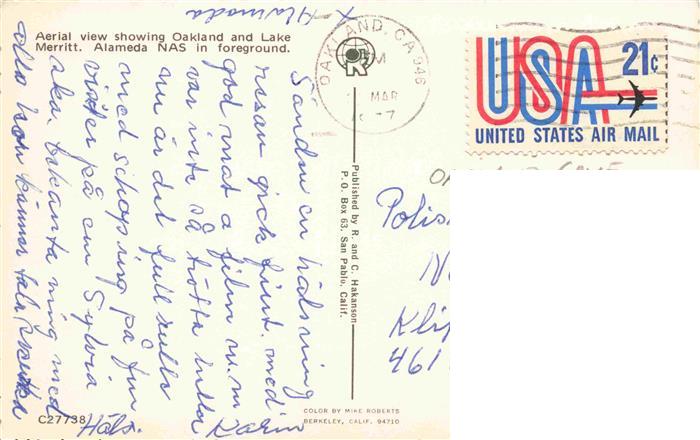 Alameda
Aerial view showing Oakland and Lake
Merritt. Alameda NAS in foreground.
Sänder en hälsning
resan gick fint. med
god mat o film m.m
var inte så trötta heller
nu är det full rulle
med schoping på fm
väntar på en Sylvia
bekanta mig med
alla hon känner tala svenska
Häls. Karin
C27738
Published by R. and C. Hakanson
P. O. Box 63, San Pablo, Calif.
COLOR BY MIKE ROBERTS
BERKELEY, CALIF. 94710
OAKLAND, CA 946
PM
MAR
USA 21¢
UNITED STATES AIR MAIL
Polis
Klip
461